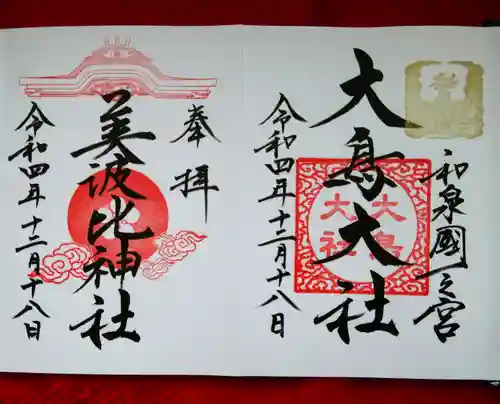 和泉國一之宮
大鳥大社
大鳥大社
令和四年十二月十八日
奉拝
美波比神社
令和四年十二月十八日